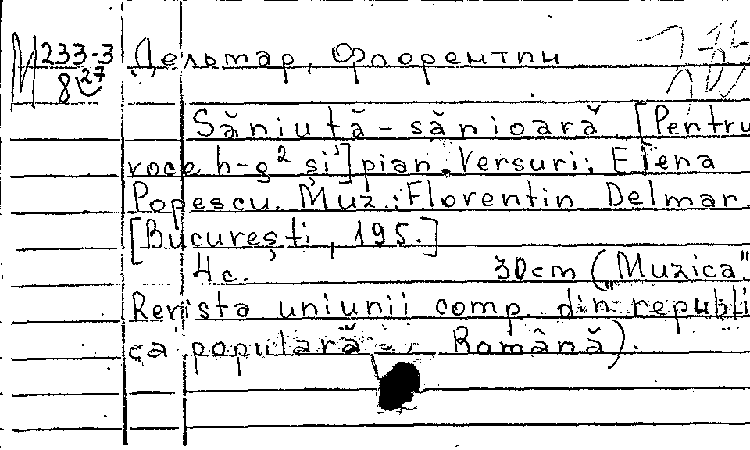 М 233-3 Дельмар, Флорентин
8 27
Săniuță-sănioară. [Pentru
voce h-g² și] pian. Versuri: Elena
Popescu. Muz.: Florentin Delmar.
[București, 195.]
4 c. 30cm ("Muzica"
Revista uniunii comp. din republi
ca populară Română).